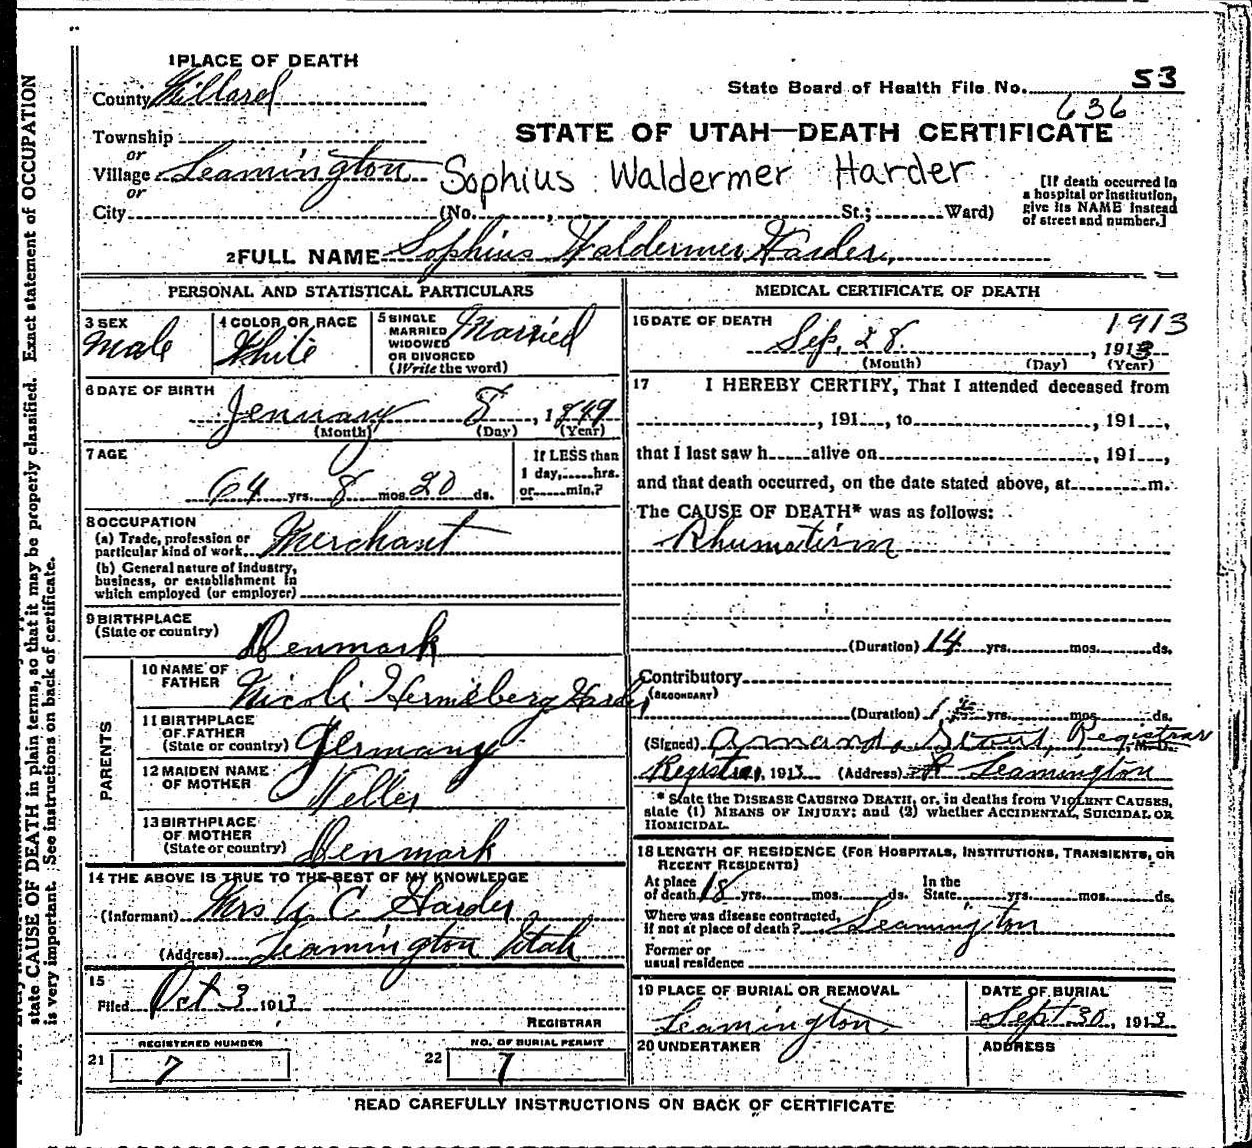 1 PLACE OF DEATH
County Millard
State Board of Health File No. 53
636
Township
or
Village Leamington
or
City (No. , St.; Ward)
STATE OF UTAH—DEATH CERTIFICATE
Sophius Waldermer Harder
[If death occurred in
a hospital or institution,
give its NAME instead
of street and number.]
2 FULL NAME Sophius Waldermer Harder,
PERSONAL AND STATISTICAL PARTICULARS
3 SEX
Male
4 COLOR OR RACE
White
5 SINGLE
MARRIED
WIDOWED
OR DIVORCED
(Write the word)
Married
6 DATE OF BIRTH
Jenuary 8, 1849
(Month) (Day) (Year)
7 AGE
64 yrs. 8 mos. 20 ds.
If LESS than
1 day, hrs.
or min.?
8 OCCUPATION
(a) Trade, profession or
particular kind of work Merchant
(b) General nature of industry,
business, or establishment in
which employed (or employer)
9 BIRTHPLACE
(State or country) Denmark
PARENTS
10 NAME OF
FATHER Nicoli Harder
11 BIRTHPLACE
OF FATHER
(State or country) Germany
12 MAIDEN NAME
OF MOTHER Neller
13 BIRTHPLACE
OF MOTHER
(State or country) Denmark
14 THE ABOVE IS TRUE TO THE BEST OF MY KNOWLEDGE
(Informant) Mrs A. C. Harder
(Address) Leamington Utah
15
Filed Oct 3 1913
REGISTRAR
REGISTERED NUMBER
21 7
NO. OF BURIAL PERMIT
22 7
MEDICAL CERTIFICATE OF DEATH
16 DATE OF DEATH 1913
Sep. 28. , 1913
(Month) (Day) (Year)
17 I HEREBY CERTIFY, That I attended deceased from
, 191 , to , 191 ,
that I last saw h alive on , 191 ,
and that death occurred, on the date stated above, at m.
The CAUSE OF DEATH* was as follows:
Rhumatism
(Duration) 14 yrs. mos. ds.
Contributory
(SECONDARY)
(Duration) yrs. mos. ds.
(Signed) Amanda Registrar M. D.
Registrar, 1913 (Address) Leamington
* State the DISEASE CAUSING DEATH, or, in deaths from VIOLENT CAUSES,
state (1) MEANS OF INJURY; and (2) whether ACCIDENTAL, SUICIDAL OR
HOMICIDAL.
18 LENGTH OF RESIDENCE (FOR HOSPITALS, INSTITUTIONS, TRANSIENTS, OR
RECENT RESIDENTS)
At place
of death 18 yrs. mos. ds.
In the
State yrs. mos. ds.
Where was disease contracted,
if not at place of death? Leamington
Former or
usual residence
19 PLACE OF BURIAL OR REMOVAL
Leamington
DATE OF BURIAL
Sept 30, 1913
20 UNDERTAKER
ADDRESS
READ CAREFULLY INSTRUCTIONS ON BACK OF CERTIFICATE
state CAUSE OF DEATH in plain terms, so that it may be properly classified. Exact statement of OCCUPATION
is very important. See instructions on back of certificate.